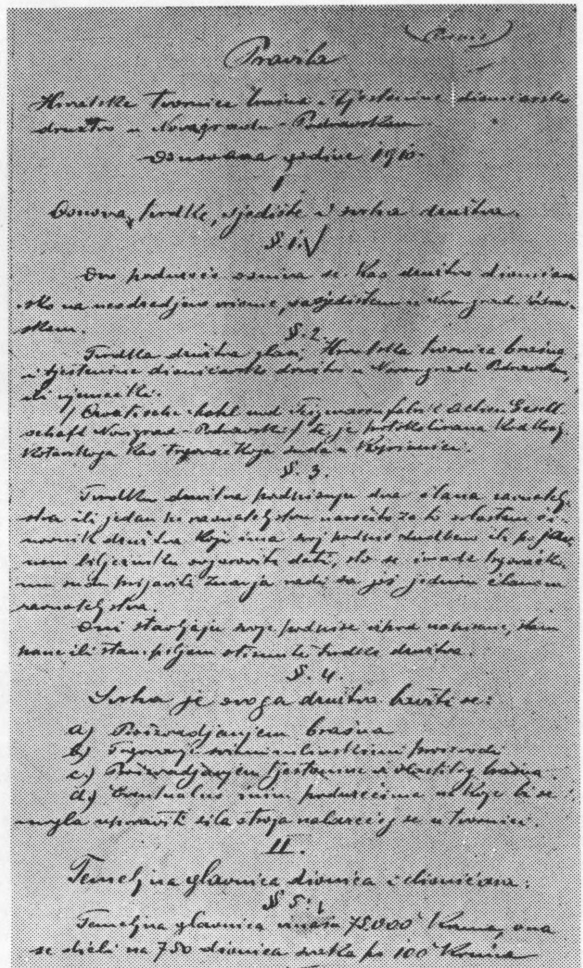 Pravila
Hrvatske tvornice brašna i tjestenine dioničarsko
društvo u Novogradu-Podravskom
Osnovana godine 1910.
I
Osnova, tvrdka, sjedište i svrha društva.
§ 1.
Ovo poduzeće osniva se kao družtvo dioničar
sko na neodredjeno vrieme, sa sjedištem u Novom gradu Podrav-
skom.
§. 2.
Tvrdka družtva glasi: Hrvatska tvornica brašna
i tjestenine dioničarsko družtvo u Novomgradu Podravskom,
ili njemački:
Kroatische Mehl und Teigwarenfabrik Actien Gesell-
schaft Novigrad-Podravski te je protokolirana kod kr.
kotarskoga kao trgovačkoga suda u Koprivnici.
§. 3.
Tvrdku družtva podpisuju dva člana ravnatelj-
stva ili jedan po ravnateljstvu naročito za to ovlašteni či-
novnik družtva koji ima svoj podpis sudbeno ili po jav-
nom bilježniku ovjeroviti dati, što se imade trgovačko-
mu sudu prijaviti znanja radi sa još jednim članom
ravnateljstva.
Oni stavljaju svoje podpise izpod napisane, štam
pane ili štampiljom otisnute tvrdke družtva.
§. 4.
Svrha je ovoga družtva baviti se:
a) Proizvadjanjem brašna
b) Trgovanje svimi mlinskimi proizvodi
c) Proizvadjanjem tjestenine iz vlastitog brašna.
d) Eventualno inim poduzećima na koje bi se
mogla uporaviti sila stroja nalazećeg se u tvornici.
II.
Temeljna glavnica dionica i dioničara.
§ 5.
Temeljna glavnica iznaša 75.000 Kruna, ona
se dieli na 750 dionica svaka po 100 Kruna